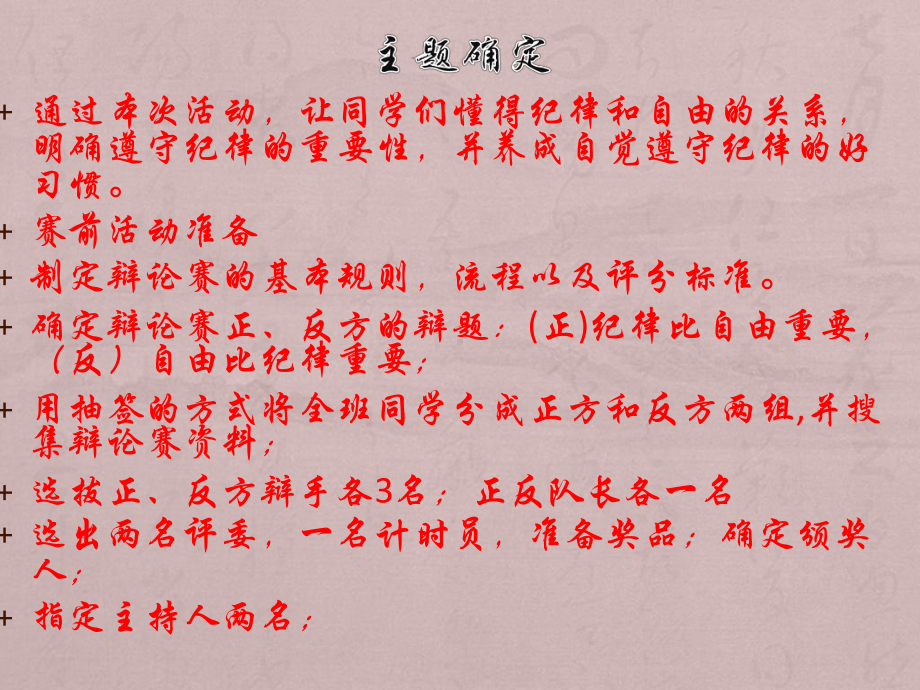 主题确定
+ 通过本次活动，让同学们懂得纪律和自由的关系，
明确遵守纪律的重要性，并养成自觉遵守纪律的好
习惯。
+ 赛前活动准备
+ 制定辩论赛的基本规则，流程以及评分标准。
+ 确定辩论赛正、反方的辩题：(正)纪律比自由重要，
（反）自由比纪律重要；
+ 用抽签的方式将全班同学分成正方和反方两组,并搜
集辩论赛资料；
+ 选拔正、反方辩手各3名；正反队长各一名
+ 选出两名评委，一名计时员，准备奖品；确定颁奖
人；
+ 指定主持人两名；